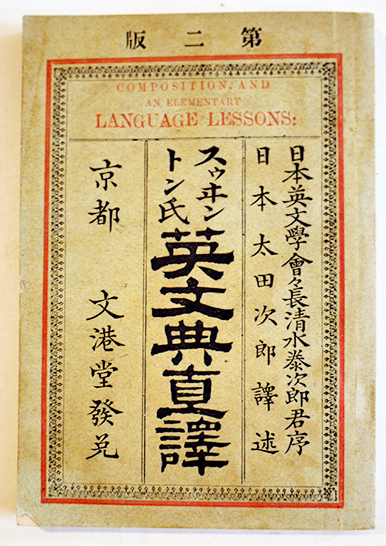 第二版
COMPOSITION, AND
AN ELEMENTARY
LANGUAGE LESSONS:
日本英文學會々長清水泰次郎君序
日本 太田次郎譯述
スゥ井ントン氏
英文典直譯
京都 文港堂發兌